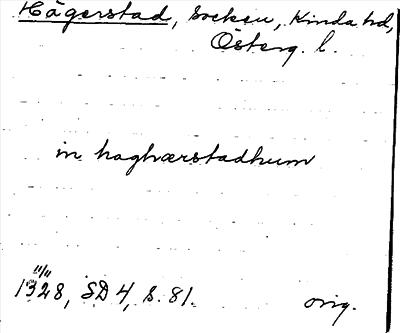 Hägerstad, socken, Kinda hd,
Österg. l.
in haghærstadhum
11/11
1328, SD 4, s. 81. orig.